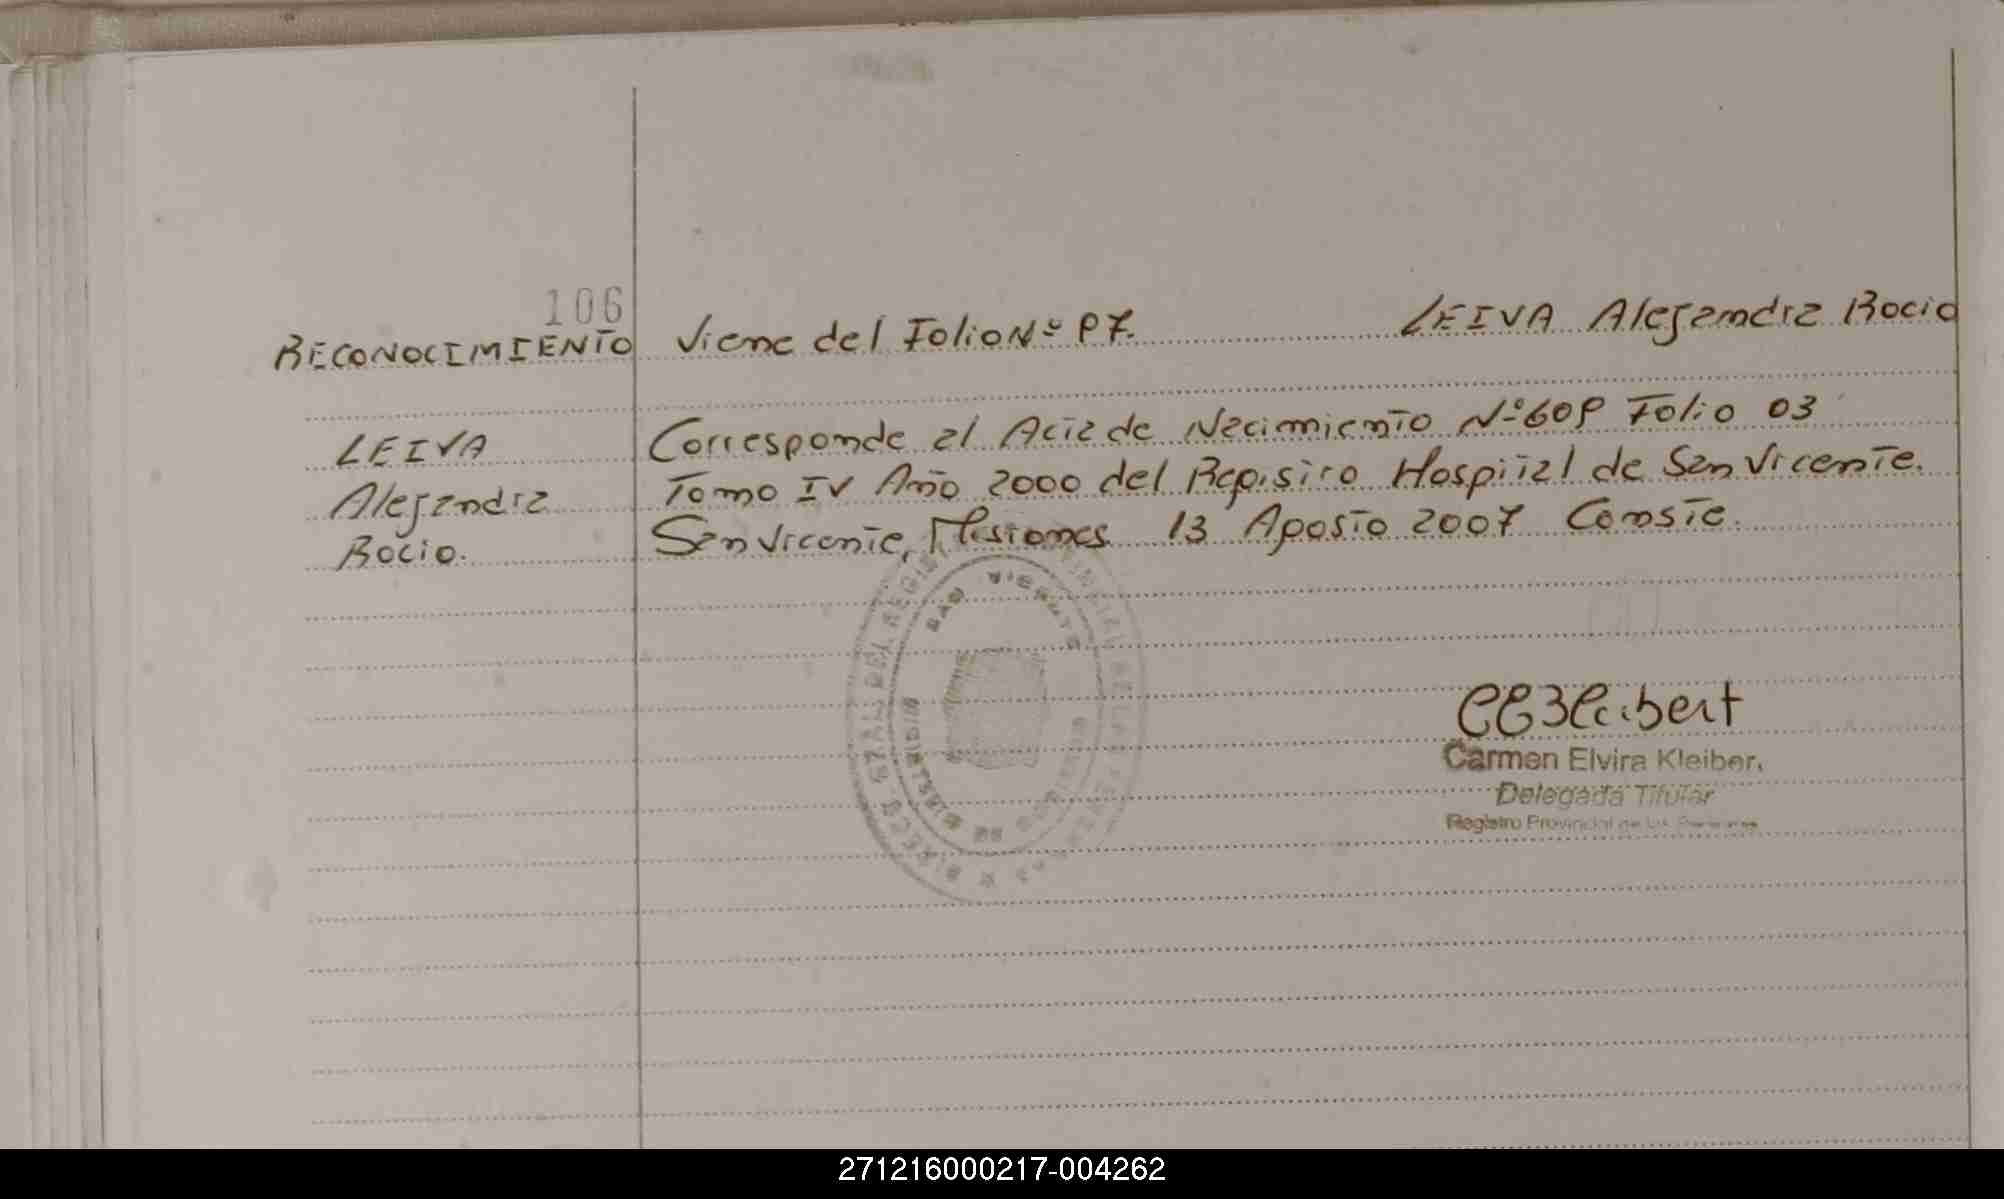 106
RECONOCIMIENTO Viene del Folio Nº 97. LEIVA Alejandra Rocio
LEIVA Corresponde al Acta de Nacimiento Nº 609 Folio 03
Alejandra Tomo IV Año 2000 del Registro Hospital de San Vicente.
Rocio. San Vicente, Misiones 13 Agosto 2007 Conste.
SAN VICENTE
MINISTERIO DE GOBIERNO
Carmen Elvira Kleiber.
Delegada Titular
Registro Provincial de Las Personas
271216000217-004262